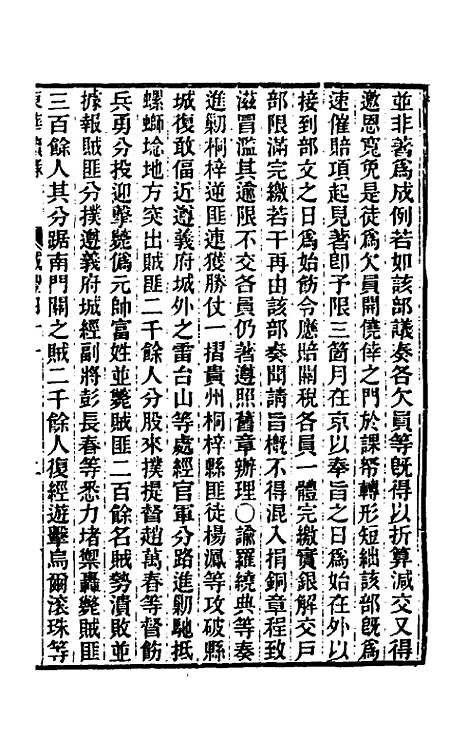 並非著爲成例若如該部議奏各欠員等既得以折算減交又得
邀恩寬免是徒爲欠員開僥倖之門於課帑轉形短絀該部既爲
速催賠項起見著即予限三箇月在京以奉旨之日爲始在外以
接到部文之日爲始飭令應賠關稅各員一體完繳實銀解交戶
部限滿完繳若干再由該部奏聞請旨概不得混入捐銅章程致
滋冒濫其逾限不交各員仍著遵照舊章辦理○諭羅繞典等奏
進勦桐梓逆匪連獲勝仗一摺貴州桐梓縣匪徒楊鳳等攻破縣
城復敢偪近遵義府城外之雷台山等處經官軍分路進勦馳抵
螺螄埝地方突出賊匪二千餘人分股來撲提督趙萬春等督飭
兵勇分投迎擊斃僞元帥富姓並斃賊匪二百餘名賊勢潰敗並
據報賊匪分撲遵義府城經副將彭長春等悉力堵禦轟斃賊匪
三百餘人其分踞南門關之賊二千餘人復經遊擊烏爾滾珠等
東華續錄 咸豐四十一